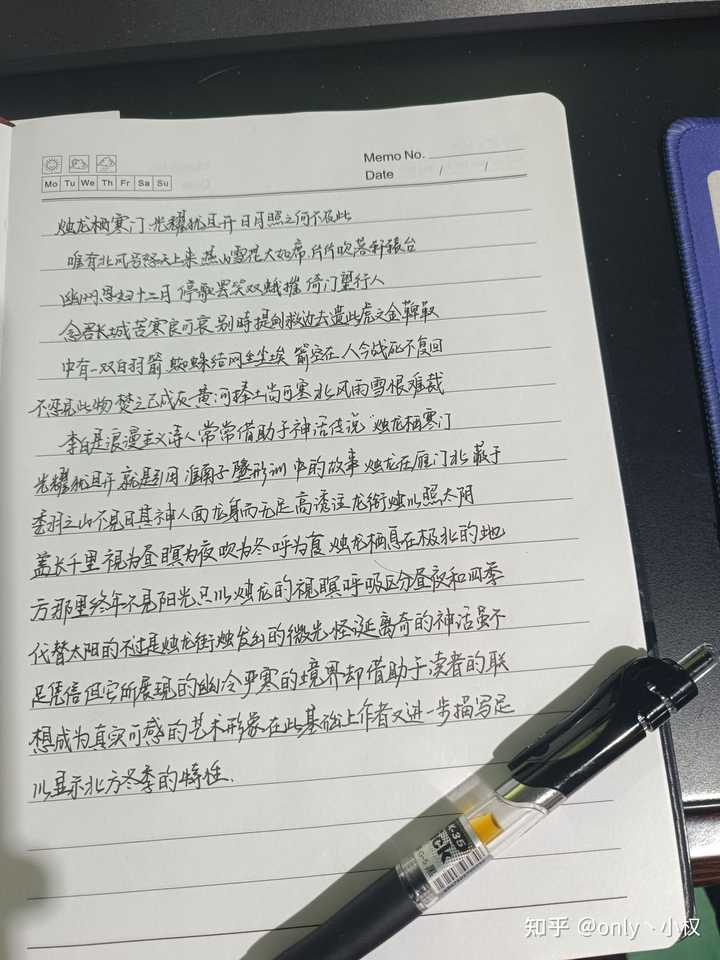 Memo No.
Mo Tu We Th Fr Sa Su
Date / /
烛龙栖寒门 光耀犹旦开 日月照之何不及此
唯有北风号怒天上来 燕山雪花大如席 片片吹落轩辕台
幽州思妇十二月 停歌罢笑双蛾摧 倚门望行人
念君长城苦寒良可哀 别时提剑救边去 遗此虎文金鞞靫
中有一双白羽箭 蜘蛛结网生尘埃 箭空在 人今战死不复回
不忍见此物 焚之已成灰 黄河捧土尚可塞 北风雨雪恨难裁
李白是浪漫主义诗人 常常借助于神话传说 "烛龙栖寒门
光耀犹旦开 就是引用 淮南子 墬形训 中的故事 烛龙在雁门北 蔽于
委羽之山 不见日 其神人面龙身而无足 高诱注 龙衔烛以照太阴
盖长千里 视为昼 瞑为夜 吹为冬 呼为夏 烛龙栖息在极北的地
方 那里终年不见阳光 只以烛龙的视瞑呼吸区分昼夜和四季
代替太阳的不过是烛龙衔烛发出的微光 怪诞离奇的神话虽不
足凭信 但它所展现的幽冷严寒的境界却借助于读者的联
想成为真实可感的艺术形象 在此基础上 作者又进一步描写足
以显示北方冬季的特性.
K-35
G-5
知乎 @only丶小权